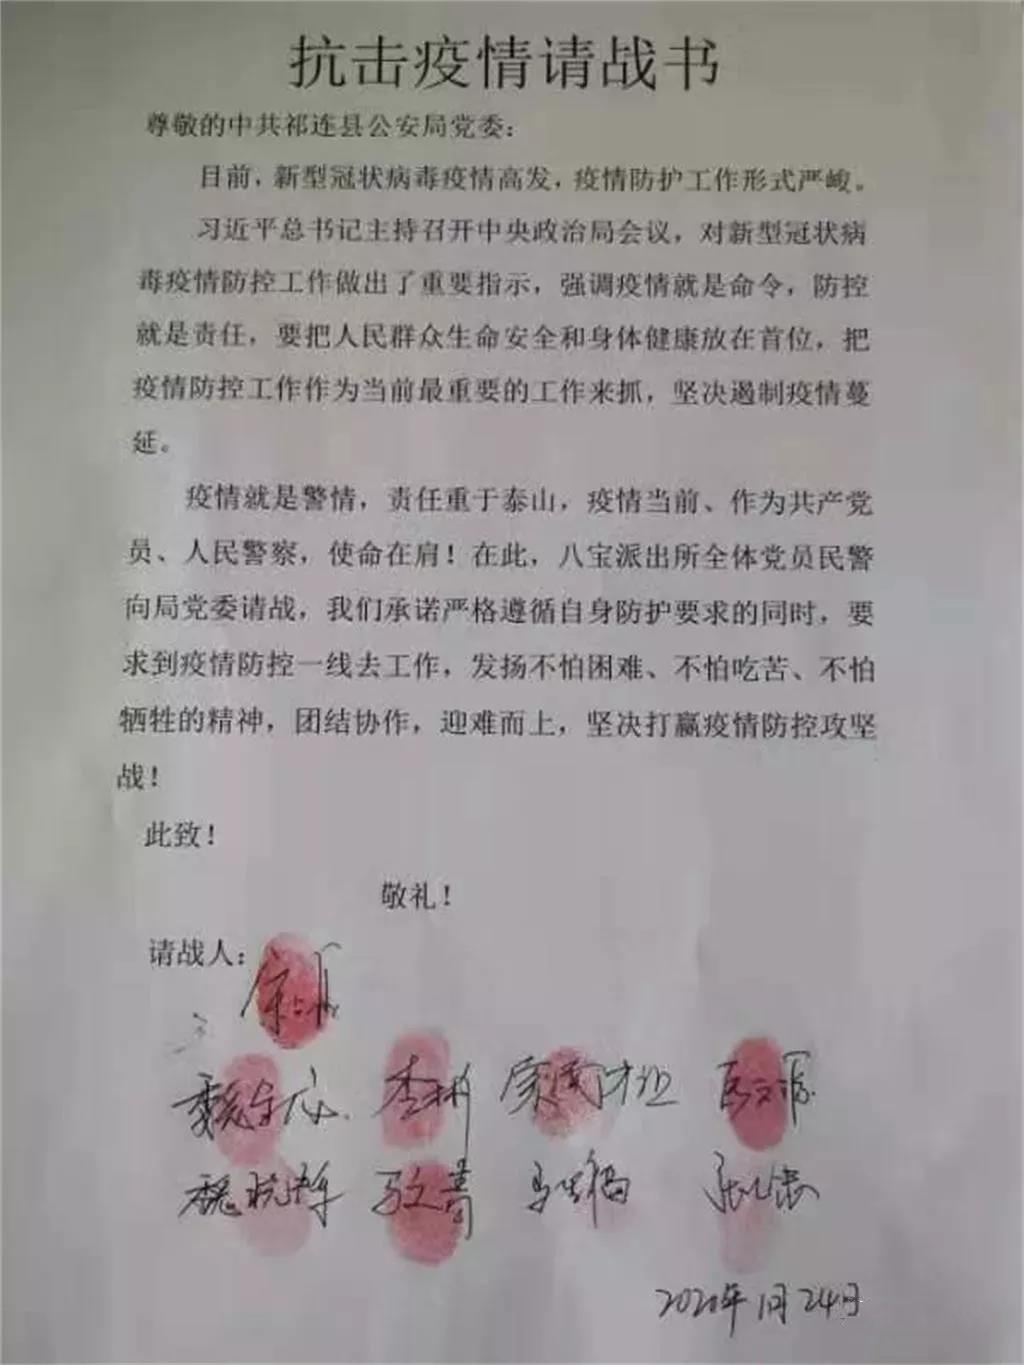 抗击疫情请战书
尊敬的中共祁连县公安局党委：
目前，新型冠状病毒疫情高发，疫情防护工作形式严峻。
习近平总书记主持召开中央政治局会议，对新型冠状病
毒疫情防控工作做出了重要指示，强调疫情就是命令，防控
就是责任，要把人民群众生命安全和身体健康放在首位，把
疫情防控工作作为当前最重要的工作来抓，坚决遏制疫情蔓
延。
疫情就是警情，责任重于泰山，疫情当前、作为共产党
员、人民警察，使命在肩！在此，八宝派出所全体党员民警
向局党委请战，我们承诺严格遵循自身防护要求的同时，要
求到疫情防控一线去工作，发扬不怕困难、不怕吃苦、不怕
牺牲的精神，团结协作，迎难而上，坚决打赢疫情防控攻坚
战！
此致！
敬礼！
请战人：
李彬
2020年1月24日